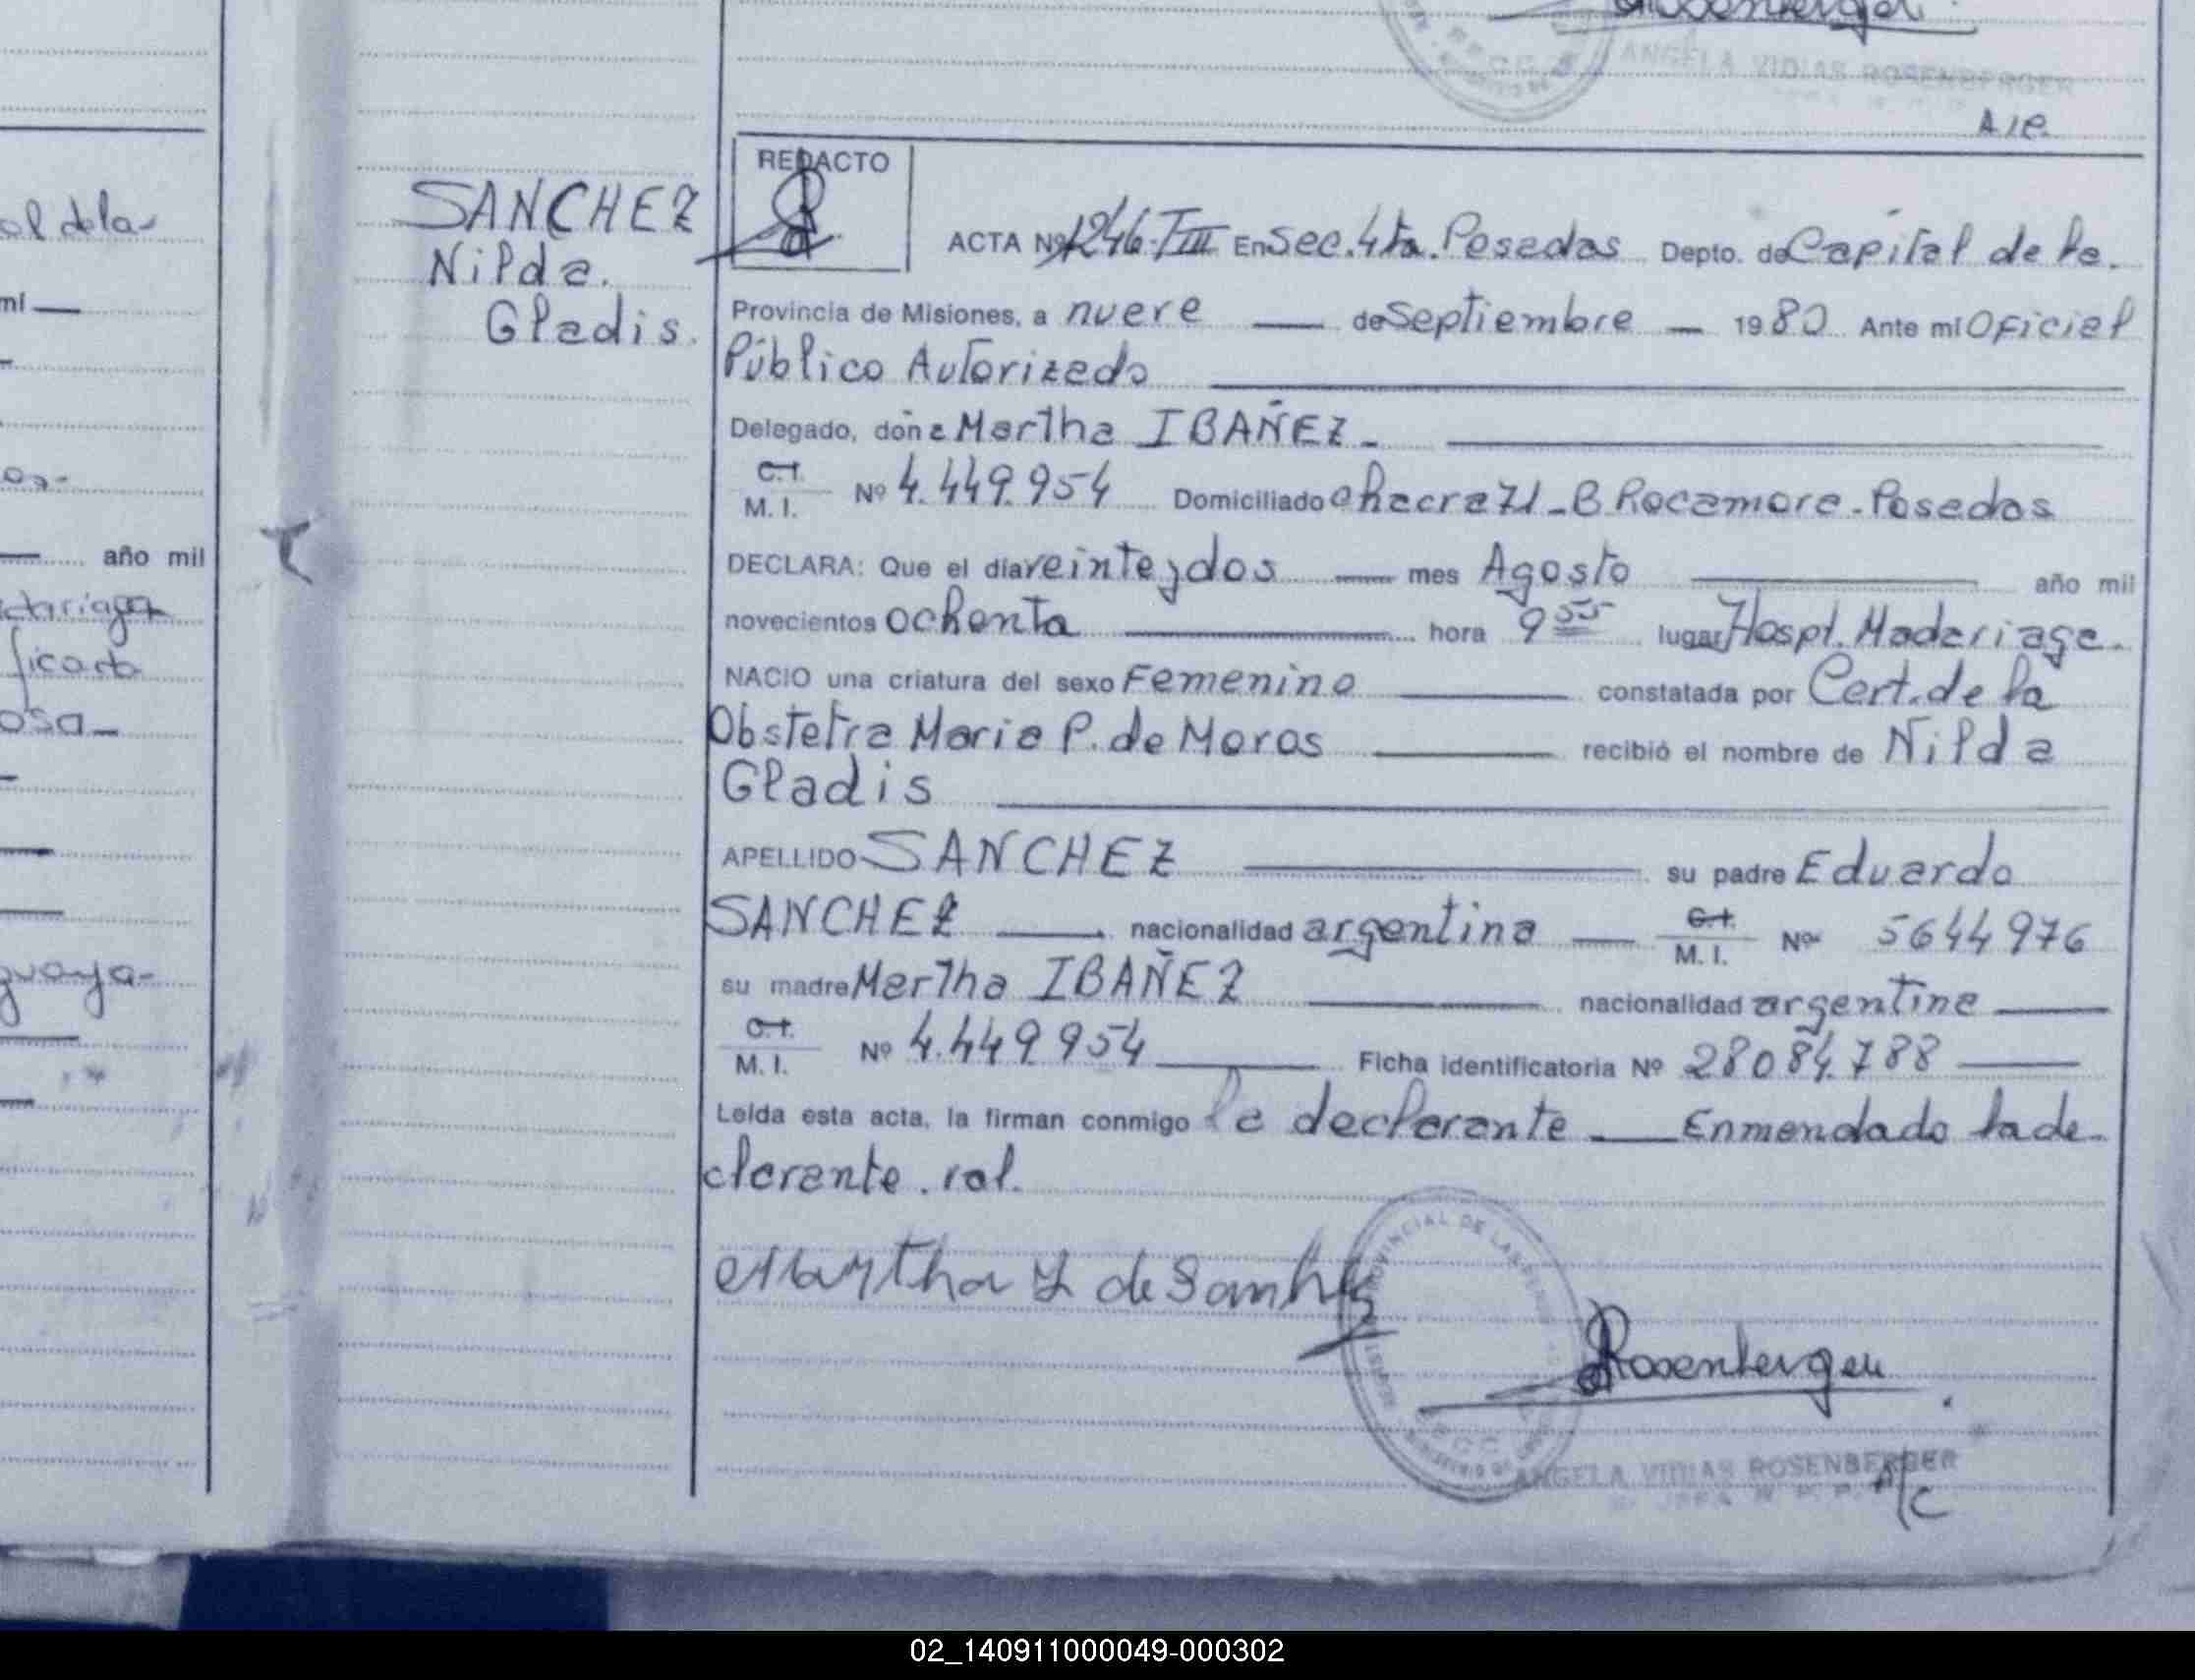 Rosenberger
ANGELA VIDIAS ROSENBERGER
A/C
ol dela-
mi
año mil
ficado
osa-
guaya-
SANCHEZ
Nilda.
Gladis.
REDACTO
ACTA Nº 1246-TIII En Sec. 4ta. Posadas Depto. de Capital de la.
Provincia de Misiones, a nueve — de Septiembre — 1980 Ante mi Oficial
Público Autorizado
Delegado, doña Martha IBAÑEZ.-
C.I.
M. I. Nº 4.449.954 Domiciliado chacra 71-B Rocamora-Posadas
DECLARA: Que el día veinteydos — mes Agosto — año mil
novecientos ochenta — hora 9 55 lugar Hospt. Madariaga.
NACIO una criatura del sexo Femenino — constatada por Cert. de la
Obstetra Maria P. de Moros — recibió el nombre de Nilda
Gladis
APELLIDO SANCHEZ — su padre Eduardo
SANCHEZ — nacionalidad argentina — C.I.
M. I. Nº 5644976
su madre Martha IBAÑEZ — nacionalidad argentina —
C.I.
M. I. Nº 4.449954 — Ficha identificatoria Nº 28084.788 —
Leída esta acta, la firman conmigo la declarante — Enmendado lade-
clarante. val.
Martha I de Sanchez
Rosenberger
ANGELA VIDIAS ROSENBERGER
A/C
02_140911000049-000302